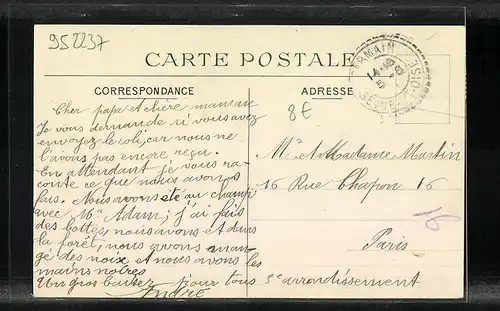 952237
CARTE POSTALE
CORRESPONDANCE
ADRESSE
8€
Cher papa et chère maman
Je vous demande si vous avez
envoyez le coli, car nous ne
l'avons pas encore reçu.
En attendant je vous ra-
conte ce que nous avons
fais. Nous avons été au champ
avec Mr Adam; j'ai fais
des bottes, nous avons et dans
la forêt, nous avons man-
gé des noix et nous avons les
mains noires
Un gros baiser pour tous
André
Mr et Madame Martin
16 Rue Chapon 16
16
Paris
3e arrondissement
GERMAIN
SEINE
OISE